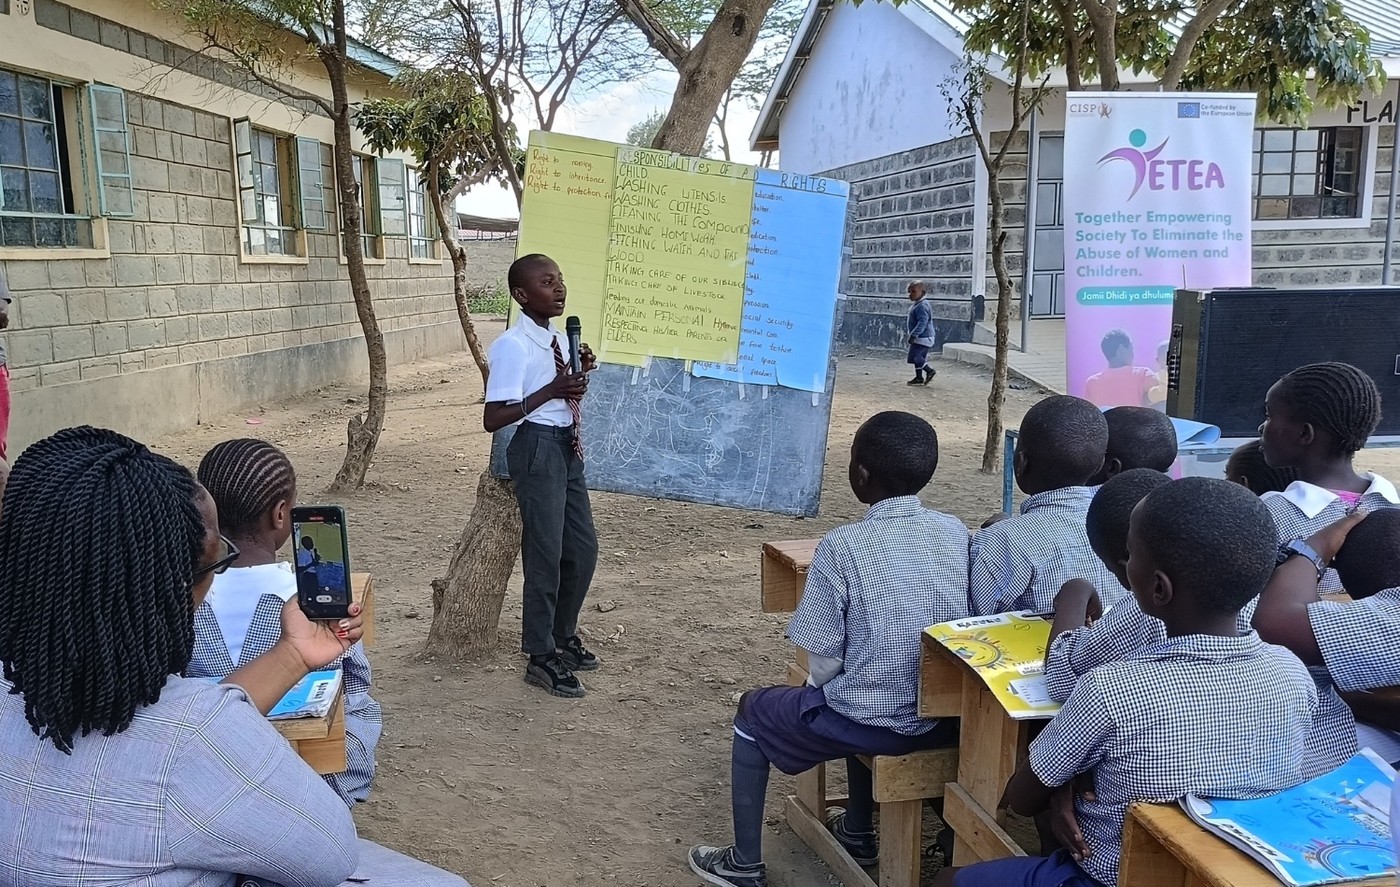 Right to naming.
Right to inheritance.
Right to protection
RESPONSIBILITIES OF A
CHILD
WASHING UTENSILS
WASHING CLOTHES
CLEANING THE COMPOUND
FINISHING HOMEWORK
FITCHING WATER AND FIRE
WOOD
TAKING CARE OF OUR SIBLI
TAKING CARE OF LIVESTOCK
feeding our domestic animals
MAINTAIN PERSONAL HYGIENE
RESPECTING HIS/HER PARENTS OR
ELDERS
RIGHTS
education.
shelter.
social security
Right to social freedom
CISP
Co-funded by
the European Union
ETEA
Together Empowering
Society To Eliminate the
Abuse of Women and
Children.
Jamii Dhidi ya dhuluma
FLA